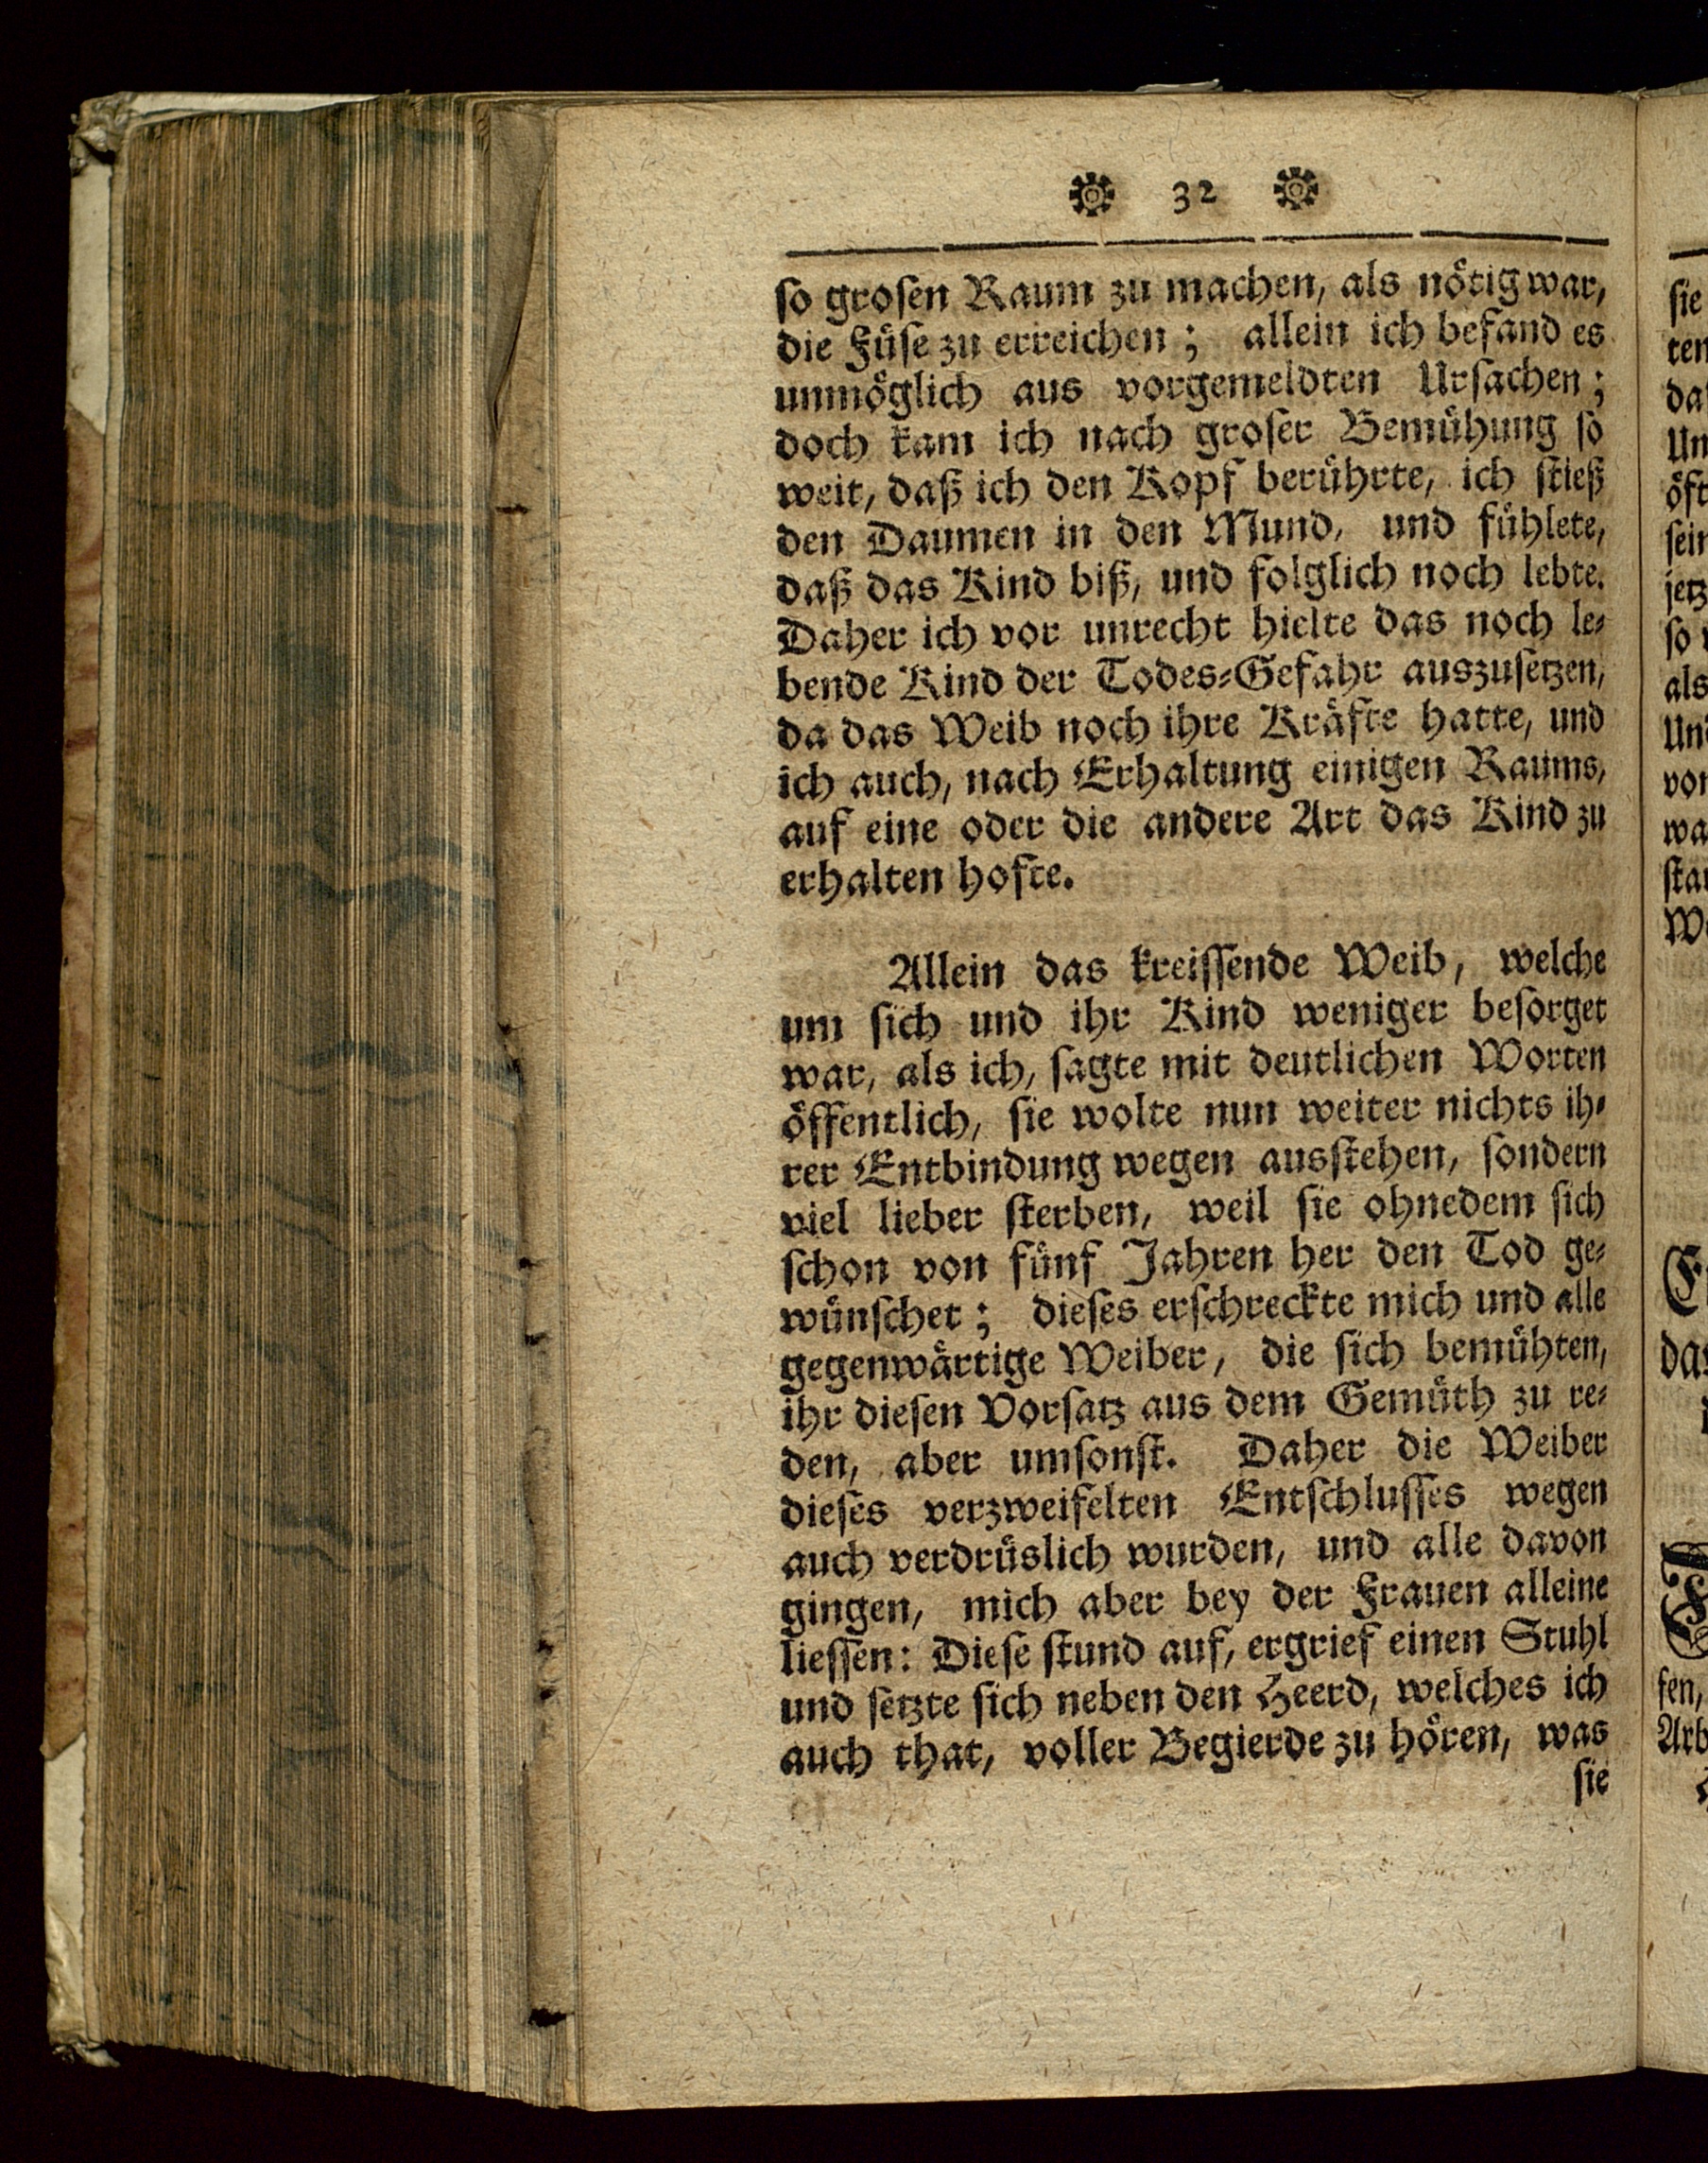 32
so grosen Raum zu machen, als nötig war,
die Füse zu erreichen; allein ich befand es
unmöglich aus vorgemeldten Ursachen;
doch kam ich nach groser Bemühung so
weit, daß ich den Kopf berührte, ich stieß
den Daumen in den Mund, und fühlete,
daß das Kind biß, und folglich noch lebte.
Daher ich vor unrecht hielte das noch le-
bende Kind der Todes-Gefahr auszusetzen,
da das Weib noch ihre Kräfte hatte, und
ich auch, nach Erhaltung einigen Raums,
auf eine oder die andere Art das Kind zu
erhalten hofte.
Allein das kreissende Weib, welche
um sich und ihr Kind weniger besorget
war, als ich, sagte mit deutlichen Worten
öffentlich, sie wolte nun weiter nichts ih-
rer Entbindung wegen ausstehen, sondern
viel lieber sterben, weil sie ohnedem sich
schon von fünf Jahren her den Tod ge-
wünschet; dieses erschreckte mich und alle
gegenwärtige Weiber, die sich bemühten,
ihr diesen Vorsatz aus dem Gemüth zu re-
den, aber umsonst. Daher die Weiber
dieses verzweifelten Entschlusses wegen
auch verdrüslich wurden, und alle davon
gingen, mich aber bey der Frauen alleine
liessen: Diese stund auf, ergrief einen Stuhl
und setzte sich neben den Heerd, welches ich
auch that, voller Begierde zu hören, was
sie